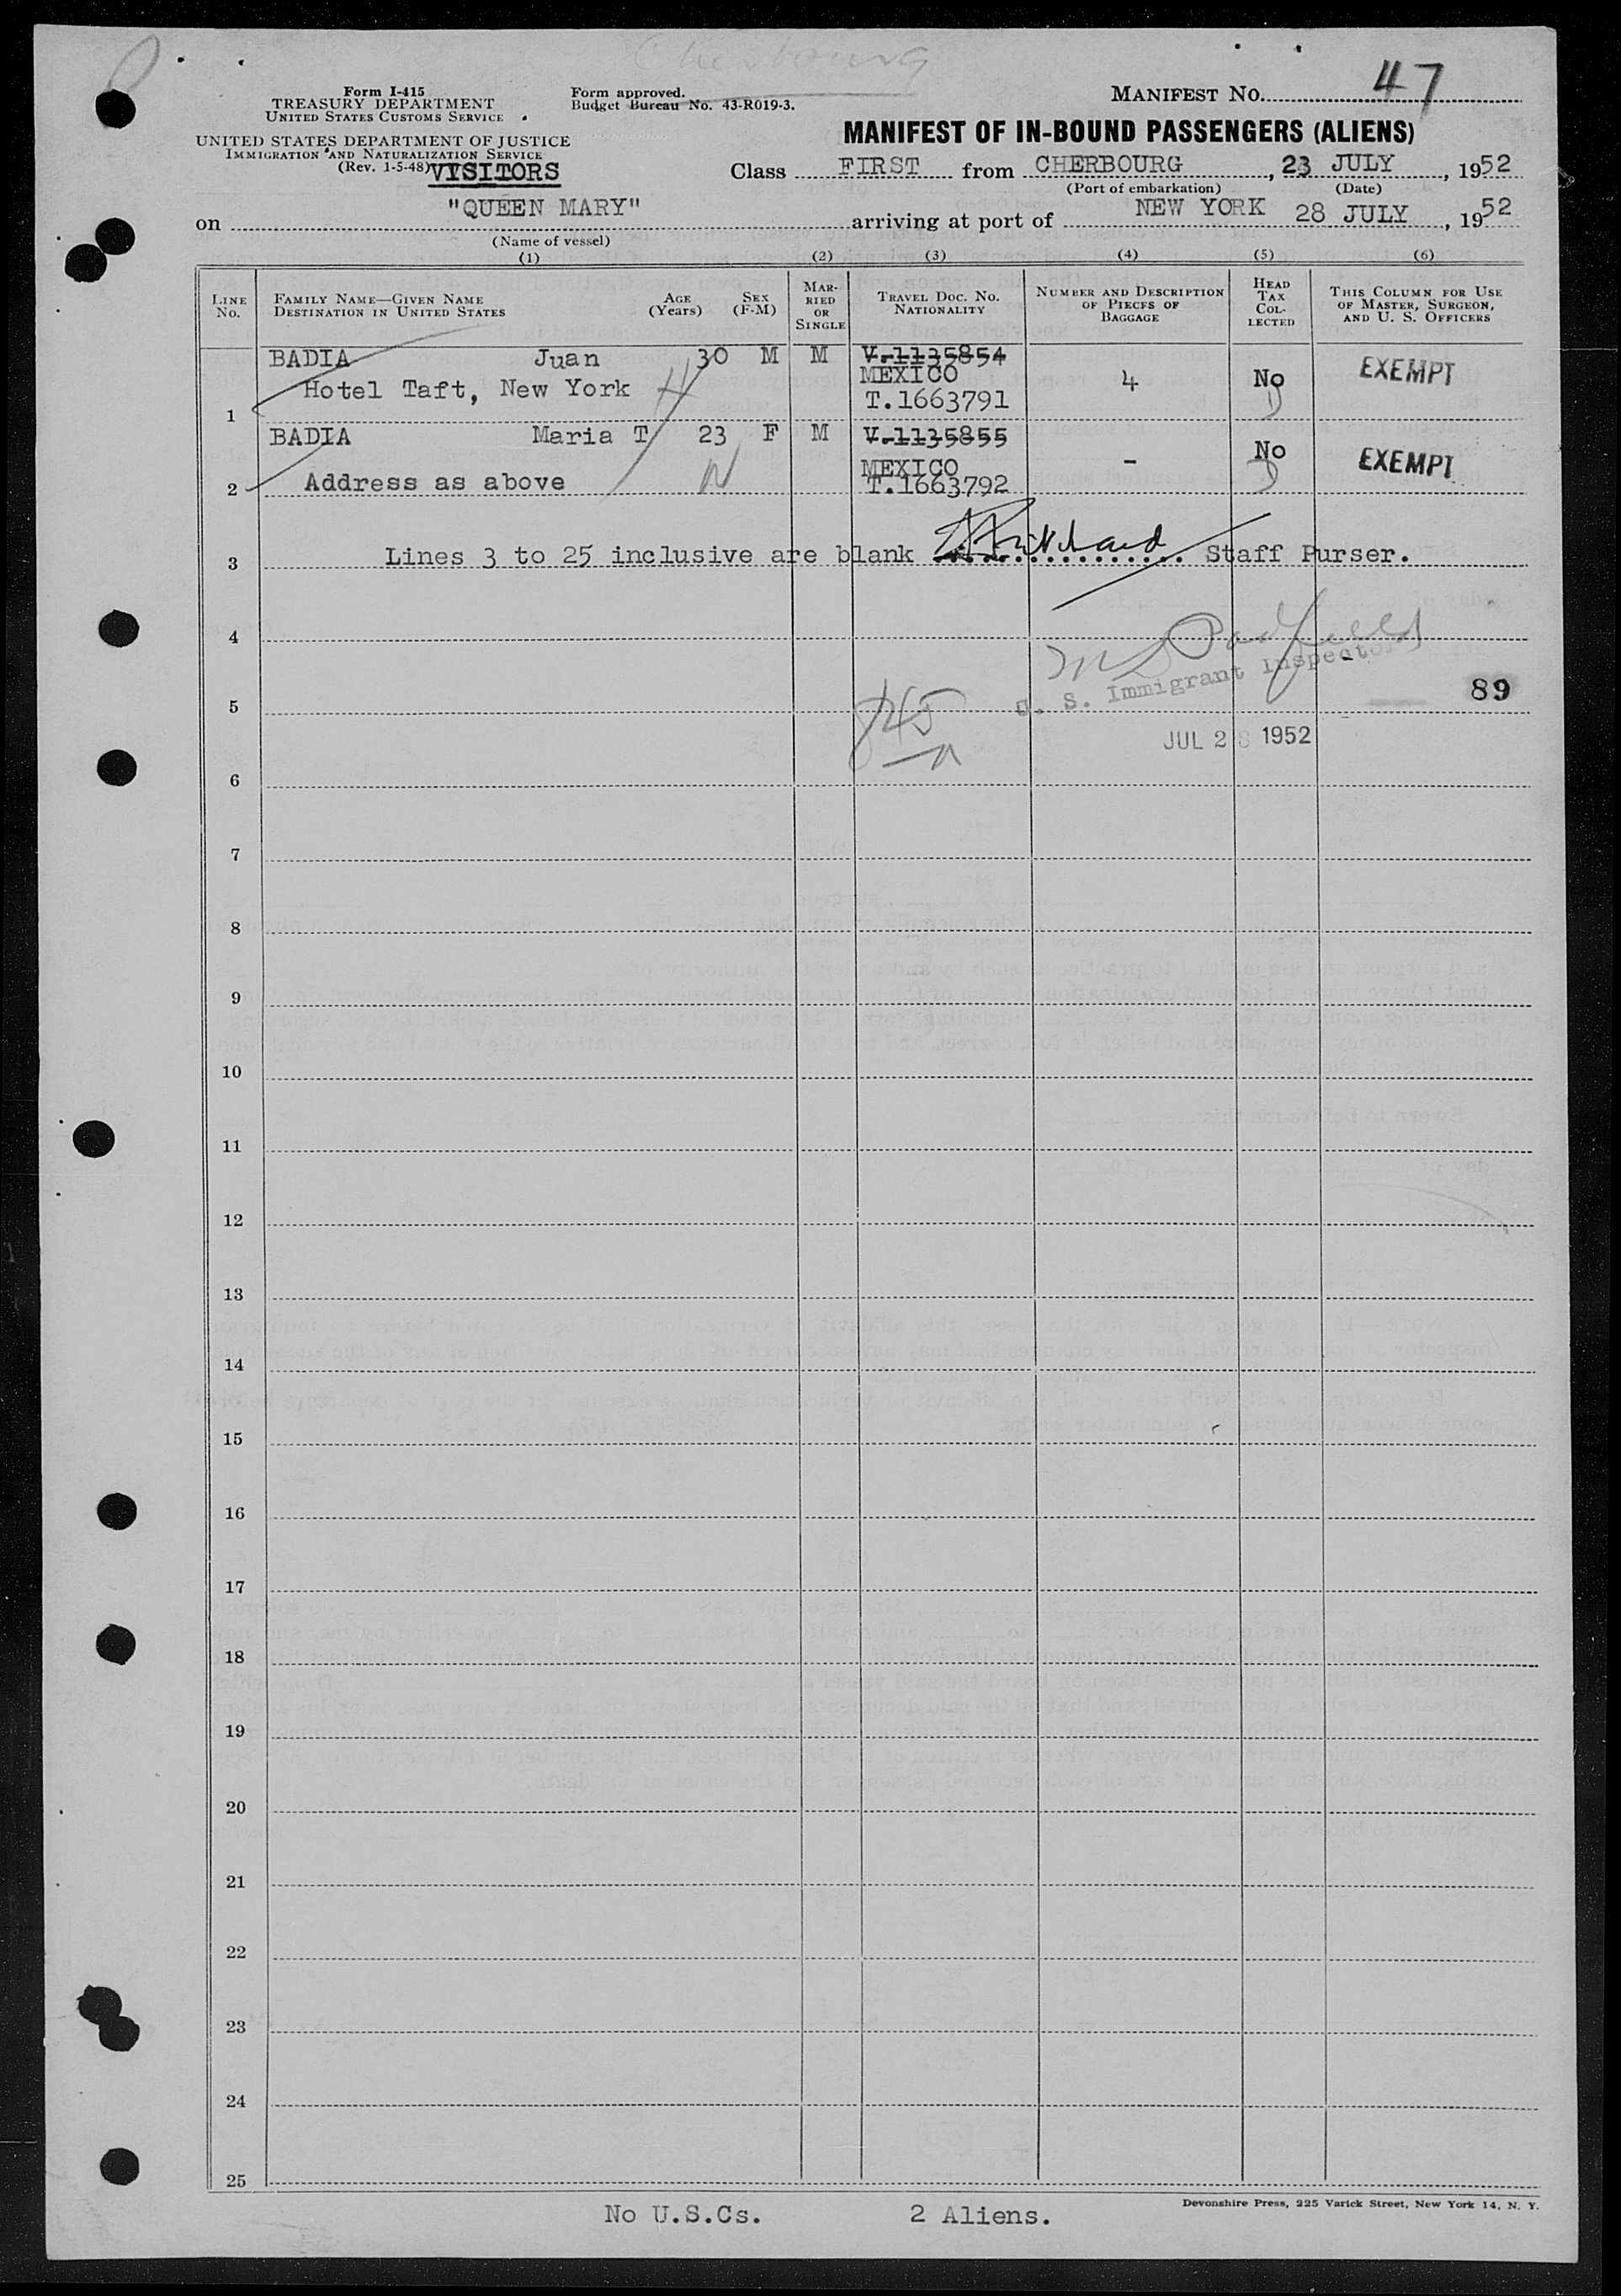 Cherbourg
Form I-415
TREASURY DEPARTMENT
UNITED STATES CUSTOMS SERVICE
Form approved.
Budget Bureau No. 43-R019-3.
MANIFEST NO. 47
UNITED STATES DEPARTMENT OF JUSTICE
IMMIGRATION AND NATURALIZATION SERVICE
(Rev. 1-5-48) VISITORS
MANIFEST OF IN-BOUND PASSENGERS (ALIENS)
Class FIRST from CHERBOURG, 23 JULY, 1952
(Port of embarkation) (Date)
on "QUEEN MARY" arriving at port of NEW YORK 28 JULY, 1952
(Name of vessel)
(1) (2) (3) (4) (5) (6)
LINE No.
FAMILY NAME—GIVEN NAME
DESTINATION IN UNITED STATES
AGE (Years)
SEX (F-M)
MARRIED OR SINGLE
TRAVEL DOC. NO. NATIONALITY
NUMBER AND DESCRIPTION OF PIECES OF BAGGAGE
HEAD TAX COLLECTED
THIS COLUMN FOR USE OF MASTER, SURGEON, AND U. S. OFFICERS
BADIA Juan 30 M M V-1135854
MEXICO 4 No EXEMPT
Hotel Taft, New York T.1663791
1
BADIA Maria T 23 F M V-1135855
MEXICO - No EXEMPT
2 Address as above T.1663792
3 Lines 3 to 25 inclusive are blank Staff Purser.
4
U. S. Immigrant Inspector
89
5
JUL 28 1952
6
7
8
9
10
11
12
13
14
15
16
17
18
19
20
21
22
23
24
25
No U.S.Cs. 2 Aliens.
Devonshire Press, 225 Varick Street, New York 14, N. Y.